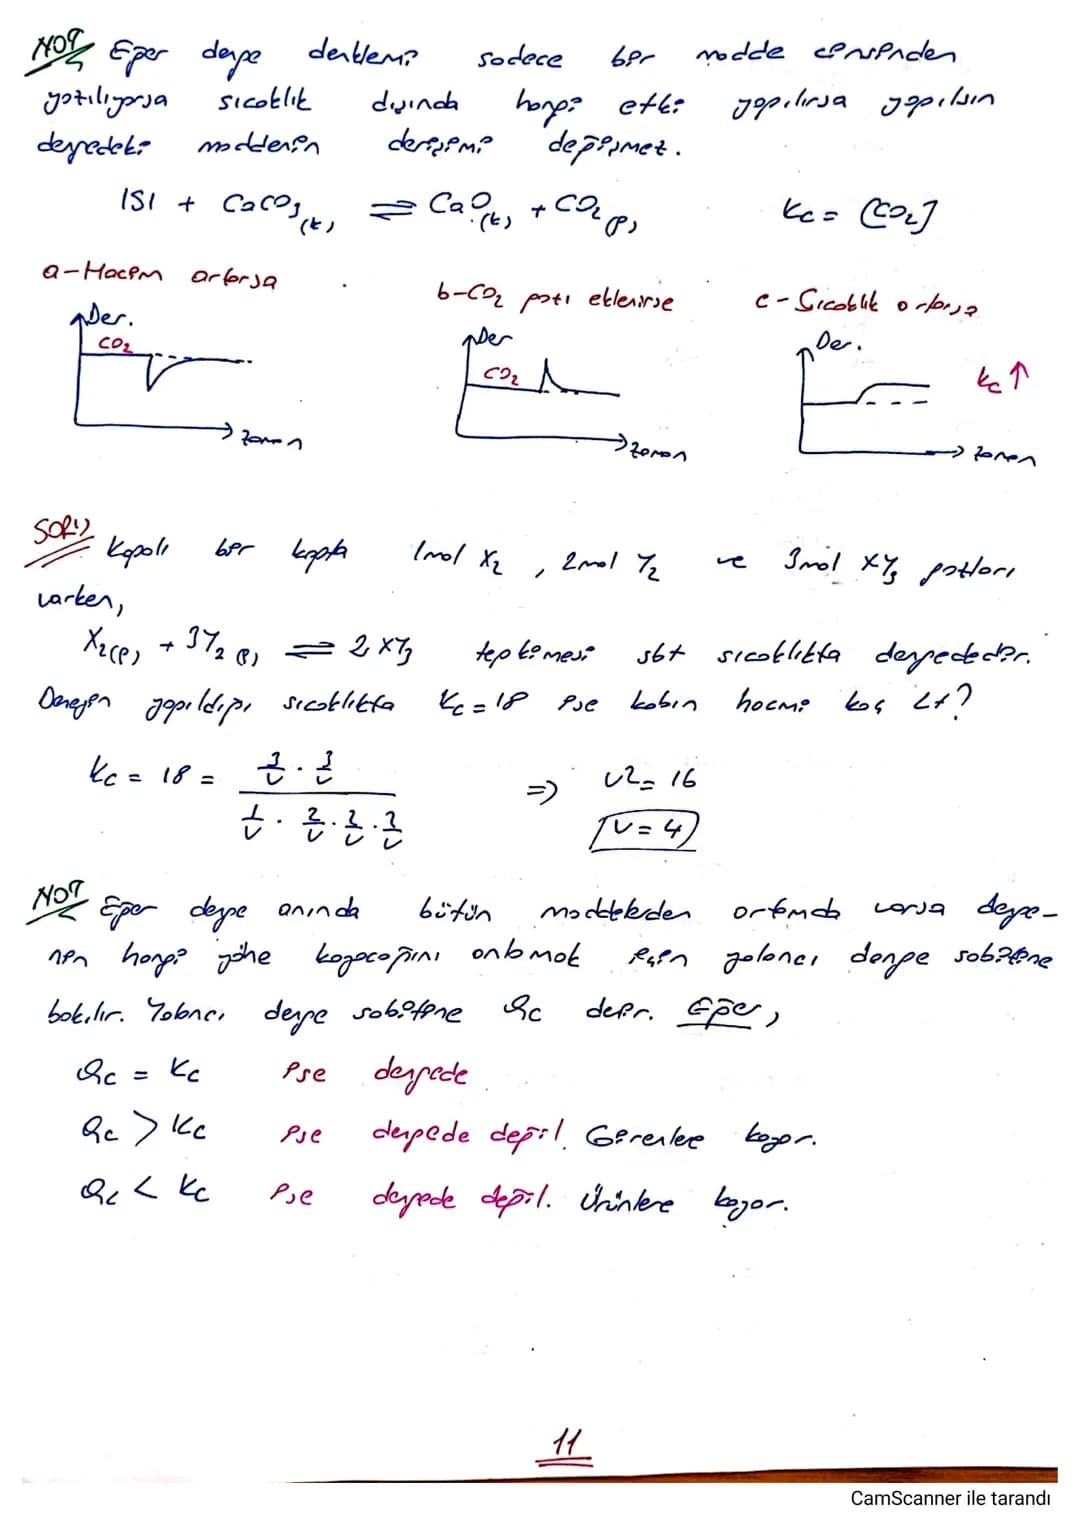 NOT Eğer denge denklemi sadece bir madde cinsinden
yazılıyorsa sıcaklık dışında hangi etki yapılırsa yapılsın
dengedeki maddenin derişimi değişmez.
ISI + CaCO₃(k) ⇌ CaO(k) + CO₂(g) Kc = [CO₂]
a-Hacim artarsa
b-CO₂ gazı eklenirse
c-Sıcaklık artarsa
Der.
CO₂
zaman
Der
CO₂
zaman
Der.
Kc↑
zaman
SORU Kapalı bir kapta 1mol X₂, 2mol Y₂ ve 3mol XY₃ gazları
varken,
X₂(g) + 3Y₂(g) ⇌ 2XY₃ tepkimesi sbt sıcaklıkta dengededir.
Deneyin yapıldığı sıcaklıkta Kc=18 ise kabın hacmi kaç Lt?
Kc = 18 = 3/V · 3/V / 1/V · 2/V · 2/V · 2/V ⇒ V² = 16
V = 4
NOT Eğer denge anında bütün maddelerden ortamda varsa denge-
nin hangi yöne kayacağını anlamak için yalancı denge sabitine
bakılır. Yalancı denge sabitine Qc denir. Eğer,
Qc = Kc ise dengede
Qc > Kc ise dengede değil. Girenlere kayar.
Qc < Kc ise dengede değil. Ürünlere kayar.
11
CamScanner ile tarandı